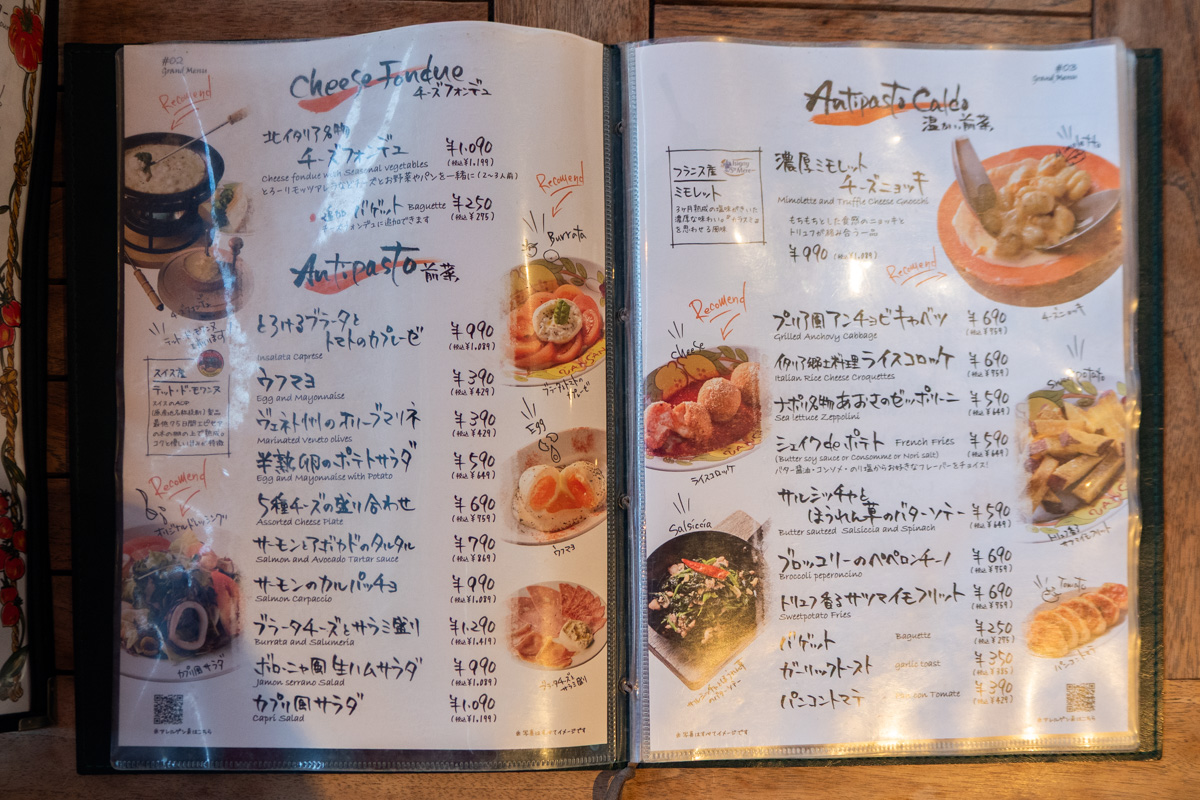 #02
Grand Menu
Cheese Fondue
チーズフォンデュ
Recomend
北イタリア名物
チーズフォンデュ
¥1.090
(税込¥1.199)
Cheese fondue with Seasonal vegetables
とろーりモッツアレラなどチーズとお野菜やパンを一緒に(2〜3人前)
追加 バゲット Baguette
¥250
(税込¥275)
チーズフォンデュに追加できます
Antipasto 前菜
Recomend
Burrata
とろけるブラータと
トマトのカプレーゼ
¥990
(税込¥1.089)
Insalata Caprese
ウフマヨ
¥390
(税込¥429)
Egg and Mayonnaise
ヴェネト州のオリーブマリネ
¥390
(税込¥429)
Marinated Veneto olives
半熟卵のポテトサラダ
¥590
(税込¥649)
Egg and Mayonnaise with Potato
5種チーズの盛り合わせ
¥690
(税込¥759)
Assorted Cheese Plate
サーモンとアボカドのタルタル
¥790
(税込¥869)
Salmon and Avocado Tartar sauce
サーモンのカルパッチョ
¥990
(税込¥1.089)
Salmon Carpaccio
ブラータチーズとサラミ盛り
¥1.290
(税込¥1.419)
Burrata and Salumeria
ボローニャ風 生ハムサラダ
¥990
(税込¥1.089)
Jamon serrano Salad
カプリ風サラダ
¥1.090
(税込¥1.199)
Capri Salad
スイス産
テット・ド・モワンヌ
Recomend
オリジナルドレッシング
カプリ風サラダ
Egg
ウフマヨ
ブラータチーズと
サラミ盛り
※アレルゲン表はこちら
※写真はすべてイメージです
#03
Grand Menu
Antipasto Caldo
温かい前菜
フランス産
ミモレット
濃厚な味わい。
を思わせる風味
濃厚ミモレット
チーズニョッキ
Mimolette and Truffle Cheese Gnocchi
もちもちとした食感のニョッキと
トリュフが絡み合う一品
¥990 (税込¥1.089)
Recomend
チーズニョッキ
Recomend
cheese
ライスコロッケ
プーリア風アンチョビキャベツ
¥690
(税込¥759)
Grilled Anchovy Cabbage
イタリア郷土料理 ライスコロッケ
¥690
(税込¥759)
Italian Rice Cheese Croquettes
ナポリ名物あおさのゼッポリーニ
¥590
(税込¥649)
Sea lettuce Zeppolini
シェイク de ポテト French Fries
¥590
(税込¥649)
(Butter soy sauce or Consomme or Nori salt)
バター醤油・コンソメ・のり塩からお好きなフレーバーをチョイス!
サルシッチャと
ほうれん草のバターソテー
¥590
(税込¥649)
Butter sauteed Salsiccia and Spinach
ブロッコリーのペペロンチーノ
¥690
(税込¥759)
Broccoli peperoncino
トリュフ香るサツマイモフリット
¥690
(税込¥759)
Sweetpotato Fries
バゲット Baguette
¥250
(税込¥275)
ガーリックトースト garlic toast
¥350
(税込¥385)
パンコントマテ Tomate
¥390
(税込¥429)
Salsiccia
Tomato
パンコントマテ
※写真はすべてイメージです
※アレルゲン表はこちら